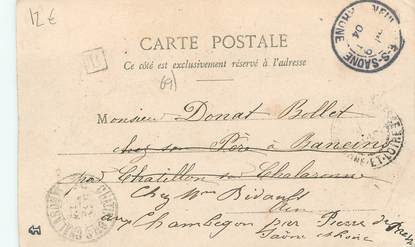 12 €
CARTE POSTALE
Ce côté est exclusivement réservé à l'adresse
69)
Monsieur Donat Bollet
chez son Père à Baneins
par Chatillon sur Chalaronne
Ain
Chez Mme Bidault
aux Chambegon par Pierre de Bresse
Saône et Loire